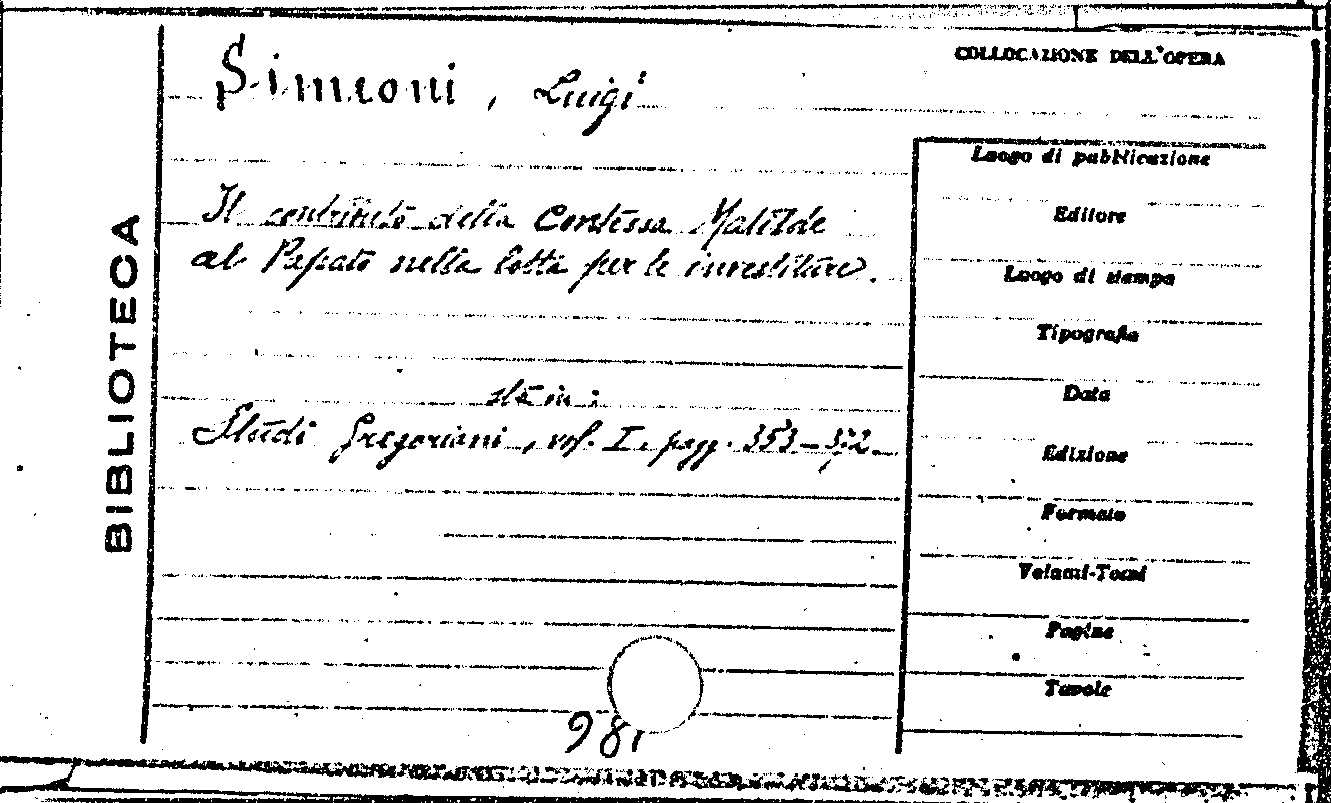 BIBLIOTECA
Simeoni, Luigi
Il contributo della Contessa Matilde
al Papato nella lotta per le investiture.
sta in:
Studi Gregoriani, vol. I. pagg. 353-372.
COLLOCAZIONE DELL'OPERA
Luogo di pubblicazione
Editore
Luogo di stampa
Tipografia
Data
Edizione
Formato
Volumi-Tomi
Pagine
Tavole